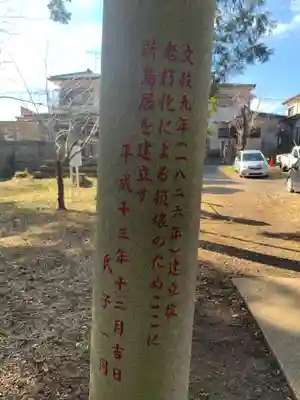 文政九年(一八二六年)建立故
老朽化による損壊のためここに
新鳥居を建立す
平成十三年十二月吉日
氏子一同